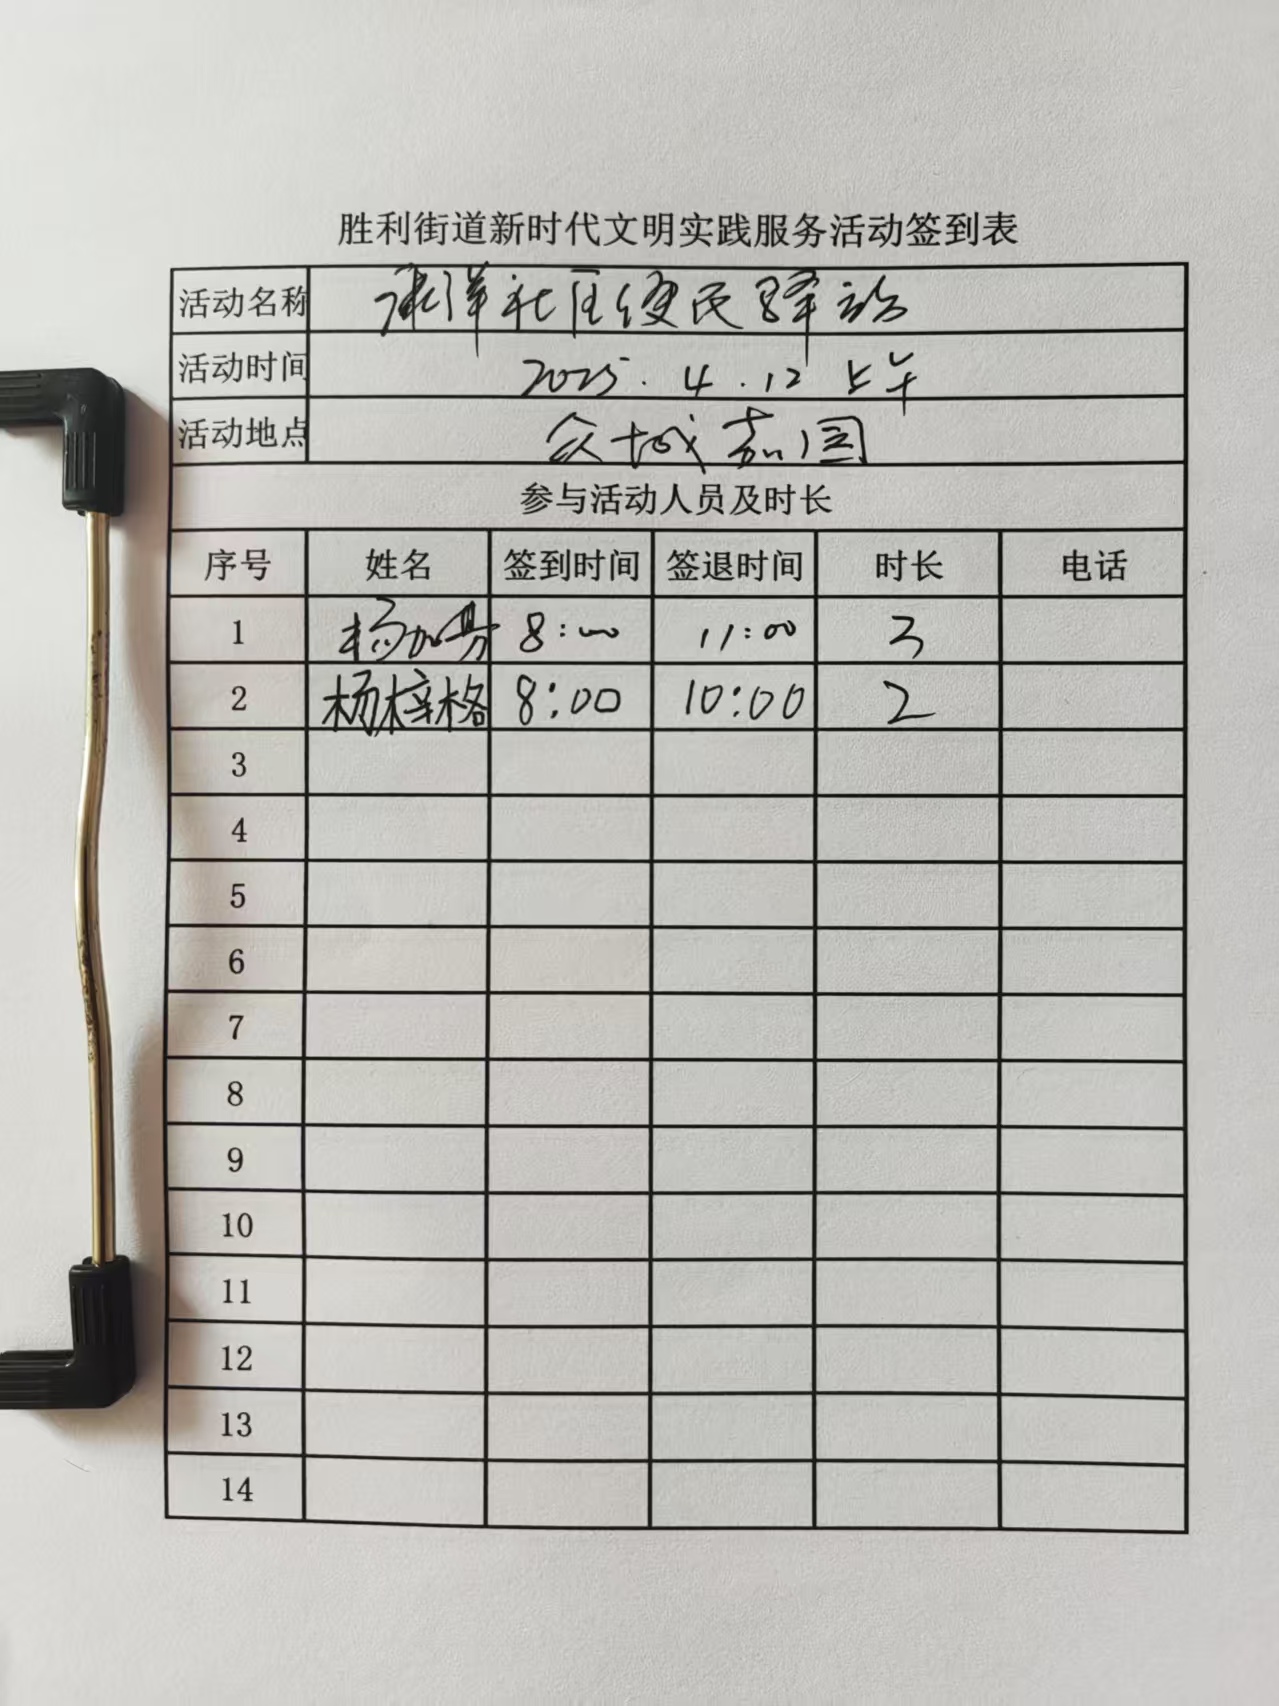 胜利街道新时代文明实践服务活动签到表
活动名称 社区便民驿站
活动时间 2025.4.12 上午
活动地点 众城嘉园
参与活动人员及时长
序号 姓名 签到时间 签退时间 时长 电话
1 杨加 8:00 11:00 3
2 杨梓格 8:00 10:00 2
3
4
5
6
7
8
9
10
11
12
13
14